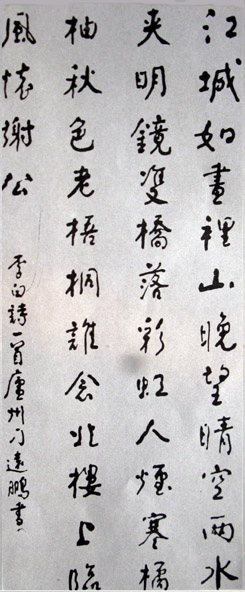 江城如畫裡山晚望晴空兩水
夾明鏡雙橋落彩虹人煙寒橘
柚秋色老梧桐誰念北樓上臨
風懷謝公
李白詩一首廬州刁遠鵬書